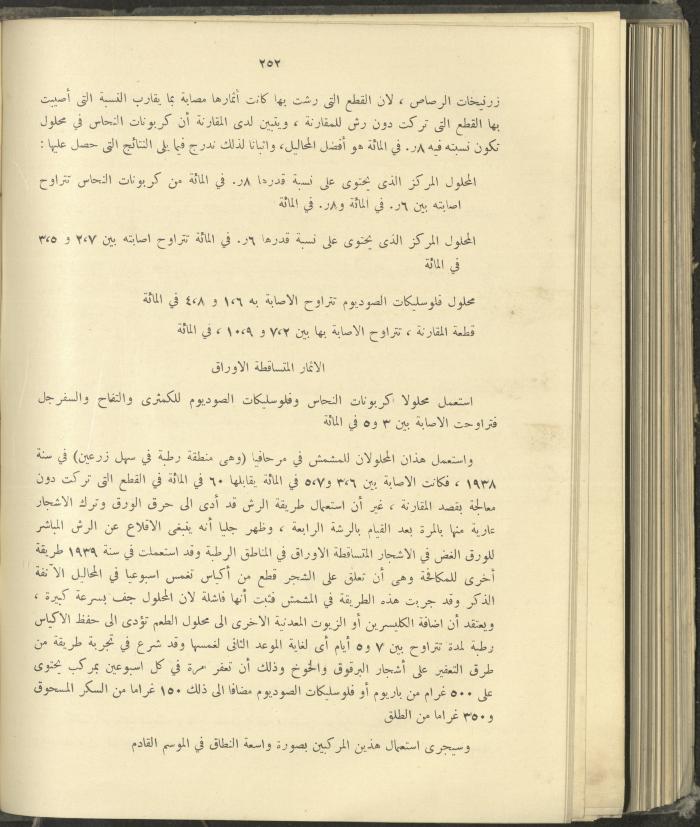 ٢٥٢
زرنيخات الرصاص ، لان القطع التى رشت بها كانت أثمارها مصابة بما يقارب النسبة التى أصيبت
بها القطع التى تركت دون رش للمقارنة ، ويتبين لدى المقارنة أن كربونات النحاس في محلول
تكون نسبته فيه ٨ر. في المائة هو أفضل المحاليل، واثباتا لذلك ندرج فيما يلى النتائج التى حصل عليها :
المحلول المركز الذى يحتوى على نسبة قدرها ٨ر. في المائة من كربونات النحاس تتراوح
اصابته بين ٦ر. في المائة و٨ر. في المائة
المحلول المركز الذى يحتوى على نسبة قدرها ٦ر. في المائة تتراوح اصابته بين ٢،٧ و ٣،٥
في المائة
محلول فلوسليكات الصوديوم تتراوح الاصابة به ١،٦ و ٤،٨ في المائة
قطعة المقارنة ، تتراوح الاصابة بها بين ٧،٢ و ١٠،٩ ، في المائة
الاثمار المتساقطة الاوراق
استعمل محلولا كربونات النحاس وفلوسليكات الصوديوم للكمثرى والتفاح والسفرجل
فتراوحت الاصابة بين ٣ و٥ في المائة
واستعمل هذان المحلولان للمشمش في مرحافيا (وهى منطقة رطبة في سهل زرعين) في سنة
١٩٣٨ ، فكانت الاصابة بين ٣،٦ و٥،٧ في المائة يقابلها ٦٠ في المائة في القطع التى تركت دون
معالجة بقصد المقارنة ، غير أن استعمال طريقة الرش قد أدى الى حرق الورق وترك الاشجار
عارية منها بالمرة بعد القيام بالرشة الرابعة ، وظهر جليا أنه ينبغى الاقلاع عن الرش المباشر
للورق الغض في الاشجار المتساقطة الاوراق في المناطق الرطبة وقد استعملت في سنة ١٩٣٩ طريقة
أخرى للمكافحة وهى أن تعلق على الشجر قطع من أكياس تغمس اسبوعيا في المحاليل الآنفة
الذكر وقد جربت هذه الطريقة في المشمش فثبت أنها فاشلة لان المحلول جف بسرعة كبيرة ،
ويعتقد أن اضافة الكليسرين أو الزيوت المعدنية الاخرى الى محلول الطعم تؤدى الى حفظ الاكياس
رطبة لمدة تتراوح بين ٧ و٥ أيام أى لغاية الموعد الثانى لغمسها وقد شرع في تجربة طريقة من
طرق التعفير على أشجار البرقوق والخوخ وذلك أن تعفر مرة في كل اسبوعين بمركب يحتوى
على ٥٠٠ غرام من باريوم أو فلوسليكات الصوديوم مضافا الى ذلك ١٥٠ غراما من السكر المسحوق
و٣٥٠ غراما من الطلق
وسيجرى استعمال هذين المركبين بصورة واسعة النطاق في الموسم القادم